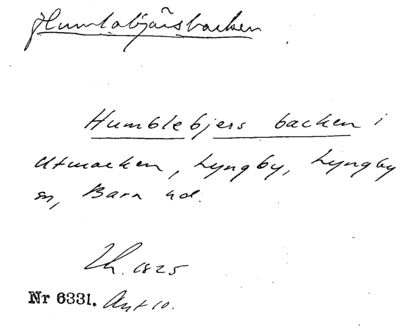 Humlabjärsbacken
Humblebjers backen i
Utmarken, Lyngby, Lyngby
sn, Bara hd.
Lh. 1825
Nr 6331. Akt 10.